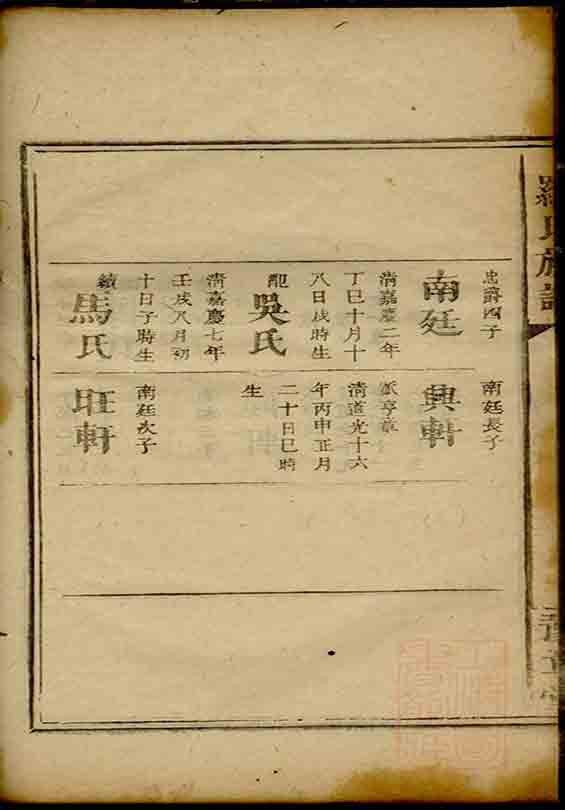 羅氏族譜
忠爵四子
南廷
清嘉慶二年
丁巳十月十
八日戌時生
配
吳氏
清嘉慶七年
壬戌八月初
十日子時生
續
馬氏
南廷長子
興軒
派亨章
清道光十六
年丙申正月
二十日巳時
生
南廷次子
旺軒